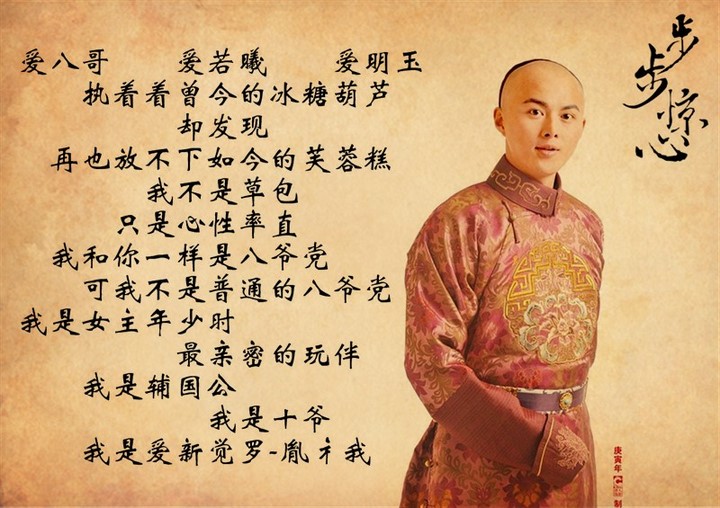 爱八哥 爱若曦 爱明玉
执着着曾今的冰糖葫芦
却发现
再也放不下如今的芙蓉糕
我不是草包
只是心性率直
我和你一样是八爷党
可我不是普通的八爷党
我是女主年少时
最亲密的玩伴
我是辅国公
我是十爷
我是爱新觉罗-胤礻我
步步惊心
庚寅年
制